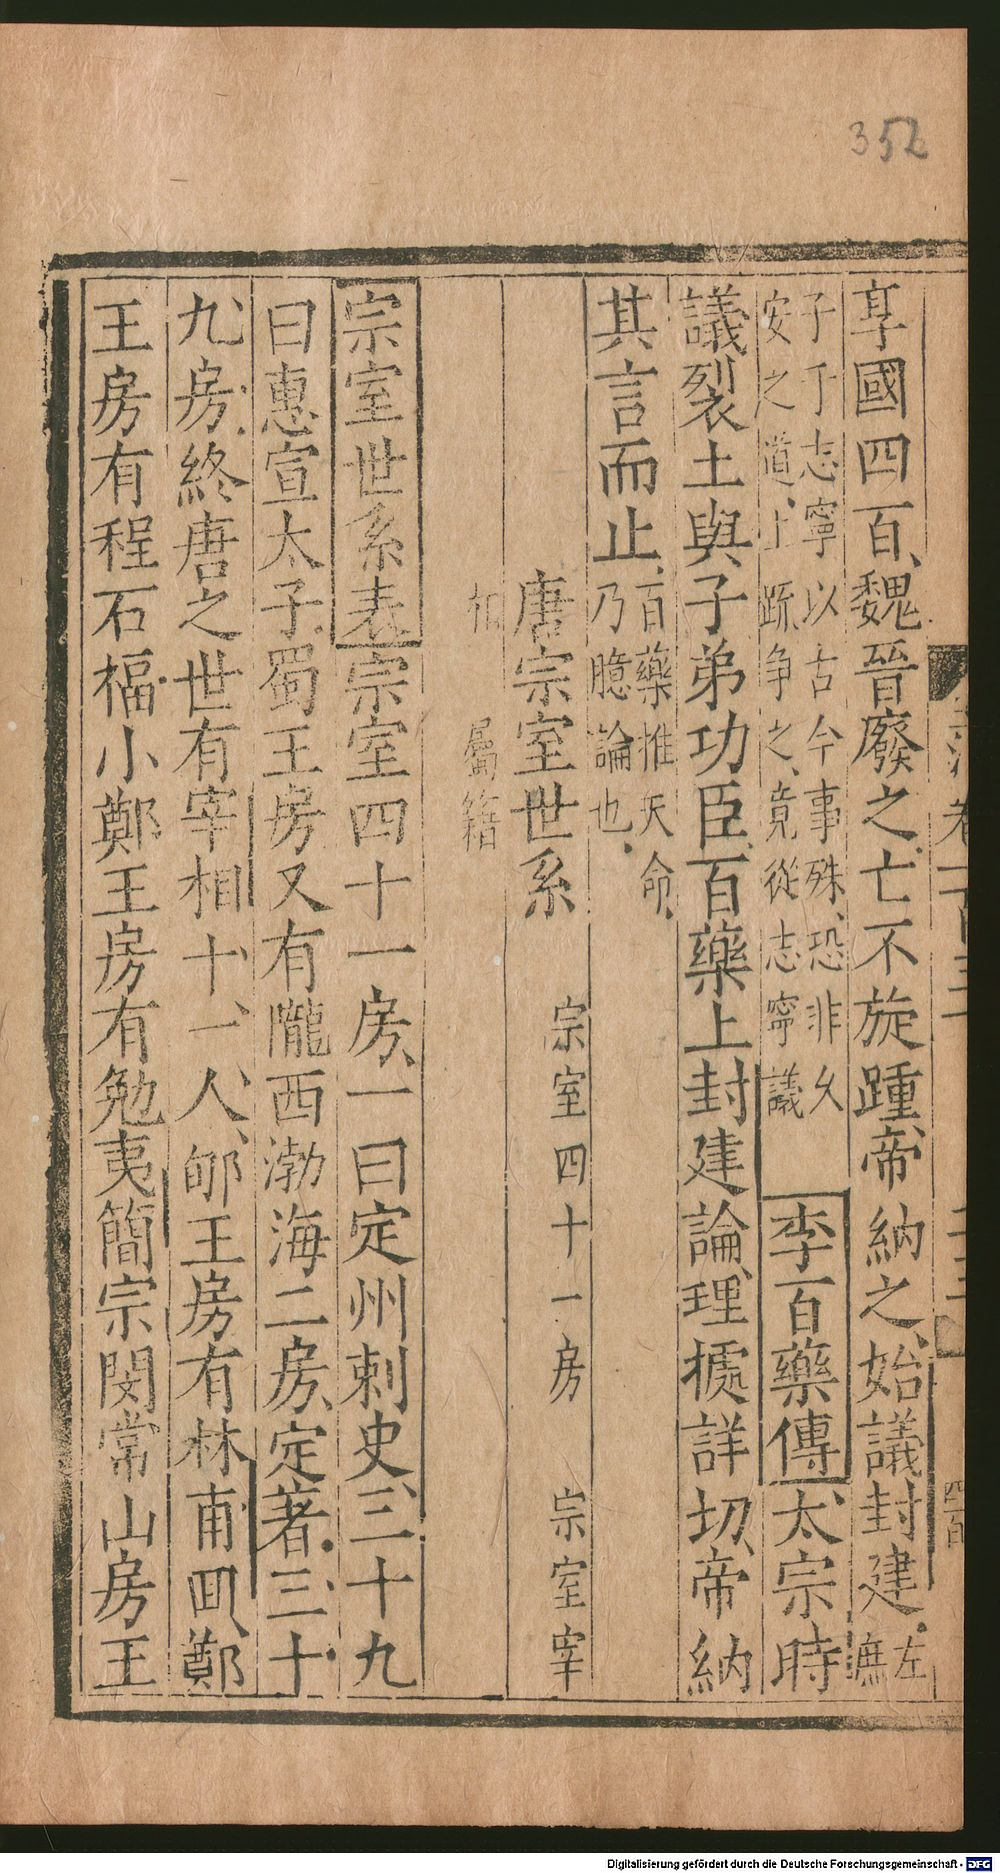 352
享國四百、魏晉廢之亡不旋踵、帝納之、始議封建、左庶
子于志寧以古今事殊、恐非久
安之道、上疏爭之、竟從志寧議
李百藥傳太宗時
議裂土與子弟功臣、百藥上封建論、理據詳切、帝納
其言而止、百藥推天命、
乃臆論也、
唐宗室世系 宗室四十一房 宗室宰
相 屬籍
宗室世系表宗室四十一房、一曰定州刺史、三十九
曰惠宣太子、蜀王房又有隴西渤海二房、定著三十
九房、終唐之世有宰相十一人、郇王房有林甫回、鄭
王房有程石福小鄭王房有勉夷簡宗閔常山房王
Digitalisierung gefördert durch die Deutsche Forschungsgemeinschaft - DFG